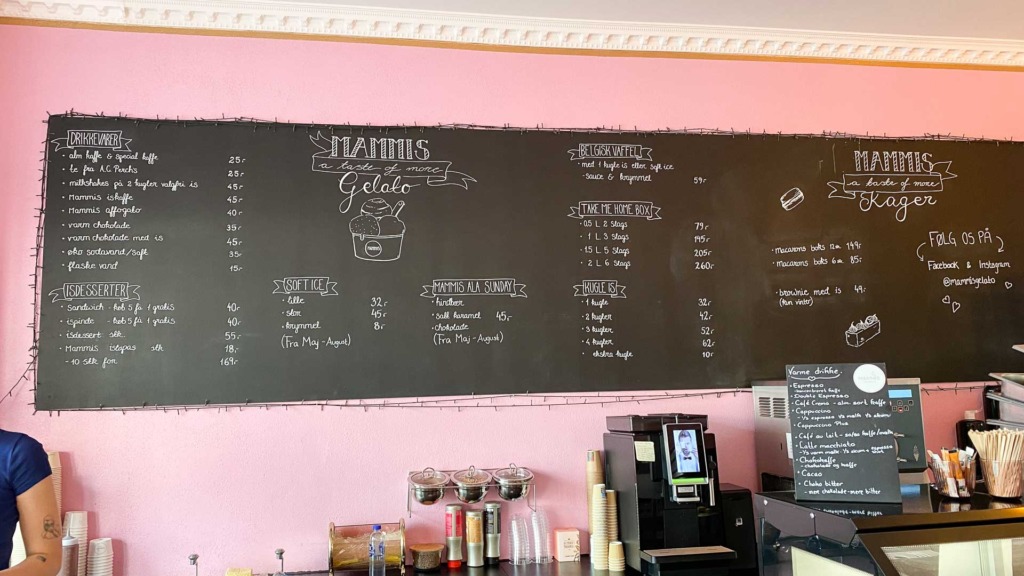 DRIKKEVARER
· alm kaffe & special kaffe 25.-
· te fra A.C. Perch's 25.-
· milkshakes på 2 kugler valgfri is 45.-
· Mammis iskaffe 45.-
· Mammis affogato 40.-
· varm chokolade 35.-
· varm chokolade med is 45.-
· øko sodavand/saft 35.-
· flaske vand 15.-
ISDESSERTER
· Sandwich - køb 5 få 1 gratis 40.-
· ispinde - køb 5 få 1 gratis 40.-
· isdessert stk. 55.-
· Mammis islapas stk 18.-
- 10 stk for 169.-
MAMMIS
a taste of more
Gelato
SOFT ICE
· lille 32.-
· stor 45.-
· krymmel 8.-
(Fra Maj - August)
MAMMIS ALA SUNDAY
· hindbær
· salt karamel 45,-
· chokolade
(Fra Maj - August)
BELGISK VAFFEL
· med 1 kugle is eller soft ice
· sauce & krymmel 59.-
TAKE ME HOME BOX
· 0.5 L 2 slags 79.-
· 1 L 3 slags 145.-
· 1.5 L 5 slags 205.-
· 2 L 6 slags 260.-
KUGLE IS
· 1 kugle 32.-
· 2 kugler 42.-
· 3 kugler 52.-
· 4 kugler 62.-
· ekstra kugle 10.-
MAMMIS
a taste of more
Kager
· macarons boks 12 stk. 149.-
· macarons boks 6 stk. 85.-
· brownie med is 49.-
(kun vinter)
FØLG OS PÅ
Facebook & Instagram
@mammisgelato
Varme drikke:
· Espresso
· Double Espresso
· Café Crema - alm sort kaffe
· Cappuccino
- 1/3 espresso 1/3 mælk 1/3 skum
· Cappuccino Plus
· Café au lait - 50/50 kaffe/mælk
· Latte macchiato
· Chofukaffe
- chokolade og kaffe
· Cacao
· Choko bitter
- mørk chokolade - mere bitter